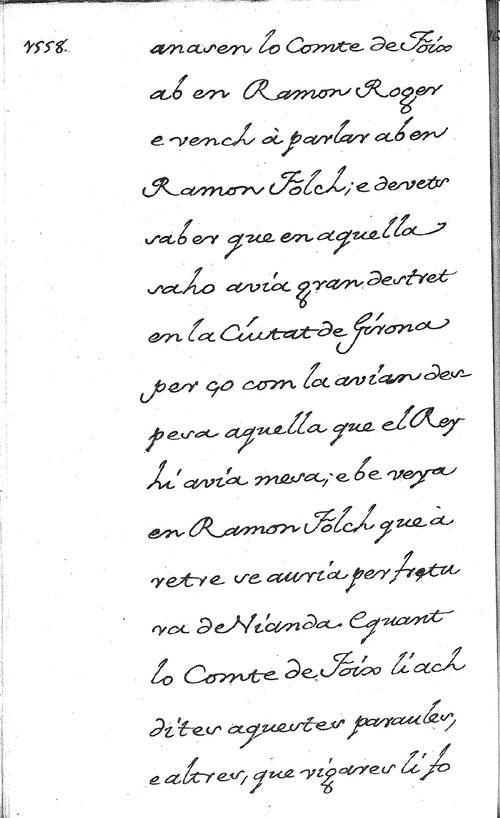 1558.
anasen lo Comte de Foix
ab en Ramon Roger
e vench à parlar ab en
Ramon Folch; e devets
saber que en aquella
saho avia gran destret
en la Ciutat de Girona
per ço com la avian des-
pesa aquella que el Rey
hi avia mesa; e be veya
en Ramon Folch que à
retre se auria per fretu
ra de Vianda. E quant
lo Comte de Foix li ach
dites aquestes paraules,
e altres, que vigares li fo